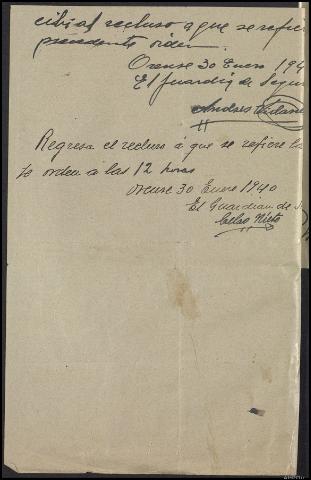 cibí al recluso a que se refie
precedente orden.
Orense 30 Enero 194
El guardián de Segu
Andrés
Regresa el recluso á que se refiere la
orden a las 12 horas
Orense 30 Enero 1940
El Guardian de S
Celso Nieto